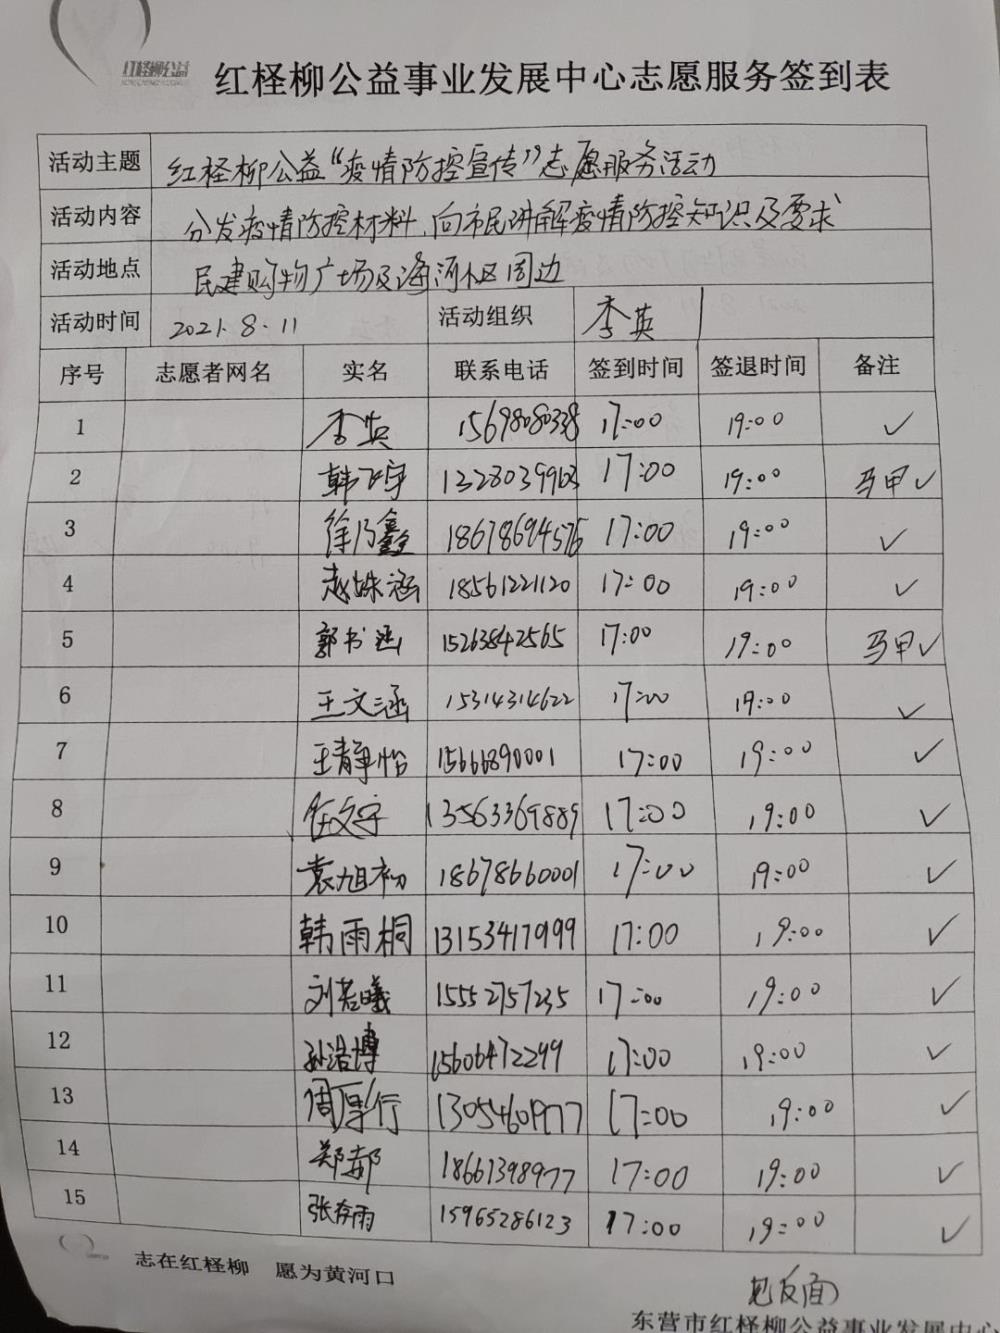 红柽柳公益
红柽柳公益事业发展中心志愿服务签到表
活动主题 红柽柳公益“疫情防控宣传”志愿服务活动
活动内容 分发疫情防控材料,向市民讲解疫情防控知识及要求
活动地点 民建购物广场及海河小区周边
活动时间 2021.8.11 活动组织 李英
序号 志愿者网名 实名 联系电话 签到时间 签退时间 备注
1 李英 15698080338 17:00 19:00 ✓
2 韩飞宇 1328039963 17:00 19:00 马甲✓
3 徐乃鑫 18678694576 17:00 19:00 ✓
4 赵姝涵 18561221120 17:00 19:00 ✓
5 郭书涵 15263842565 17:00 19:00 马甲✓
6 王文涵 15314314622 17:00 19:00 ✓
7 王静怡 15666890001 17:00 19:00 ✓
8 任文宇 13563369889 17:00 19:00 ✓
9 袁旭初 18678660001 17:00 19:00 ✓
10 韩雨桐 13153417999 17:00 19:00 ✓
11 刘若曦 15552757235 17:00 19:00 ✓
12 孙浩博 15606472299 17:00 19:00 ✓
13 周厚行 13054601977 17:00 19:00 ✓
14 郑郝 18661398977 17:00 19:00 ✓
15 张存雨 15965286123 17:00 19:00 ✓
志在红柽柳 愿为黄河口
见反面
东营市红柽柳公益事业发展中心